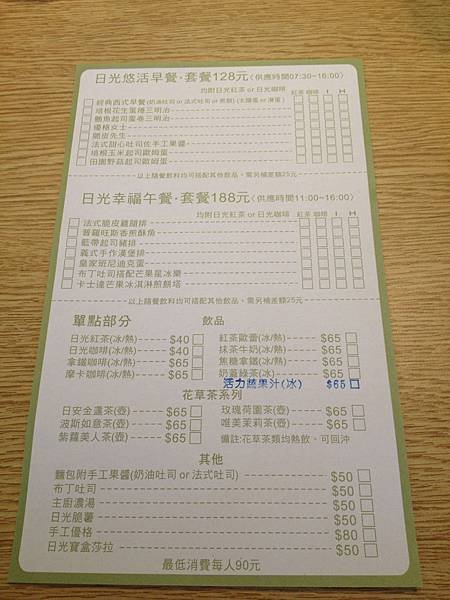 日光悠活早餐‧套餐128元(供應時間07:30~16:00)
均附日光紅茶 or 日光咖啡 紅茶 咖啡 I H
經典西式早餐(奶油吐司 or 法式吐司 or 煎餅) (太陽蛋 or 滑蛋)
培根花生蛋捲三明治
鮪魚起司蛋卷三明治
優格女士
脆皮先生
法式甜心吐司佐手工果醬
培根玉米起司歐姆蛋
田園野菇起司歐姆蛋
以上隨餐飲料均可搭配其他飲品、需另補差額25元
日光幸福午餐‧套餐188元(供應時間11:00~16:00)
均附日光紅茶 or 日光咖啡 紅茶 咖啡 I H
法式脆皮雞腿排
普羅旺斯香煎酥魚
藍帶起司豬排
義式手作漢堡排
皇家班尼迪克蛋
布丁吐司搭配芒果星冰樂
卡士達芒果冰淇淋煎餅塔
以上隨餐飲料均可搭配其他飲品、需另補差額25元
單點部分 飲品
日光紅茶(冰/熱) $40 紅茶歐蕾(冰/熱) $65
日光咖啡(冰/熱) $40 抹茶牛奶(冰/熱) $65
拿鐵咖啡(冰/熱) $65 焦糖拿鐵(冰/熱) $65
摩卡咖啡(冰/熱) $65 奶蓋綠茶(冰) $65
活力蔬果汁(冰) $65
花草茶系列
日安金盞茶(壺) $65 玫瑰荷園茶(壺) $65
波斯如意茶(壺) $65 唯美茉莉茶(壺) $65
紫蘿美人茶(壺) $65 備註:花草茶類均熱飲、可回沖
其他
麵包附手工果醬(奶油吐司 or 法式吐司) $50
布丁吐司 $50
主廚濃湯 $50
日光脆薯 $50
手工優格 $80
日光寶盒莎拉 $50
最低消費每人90元